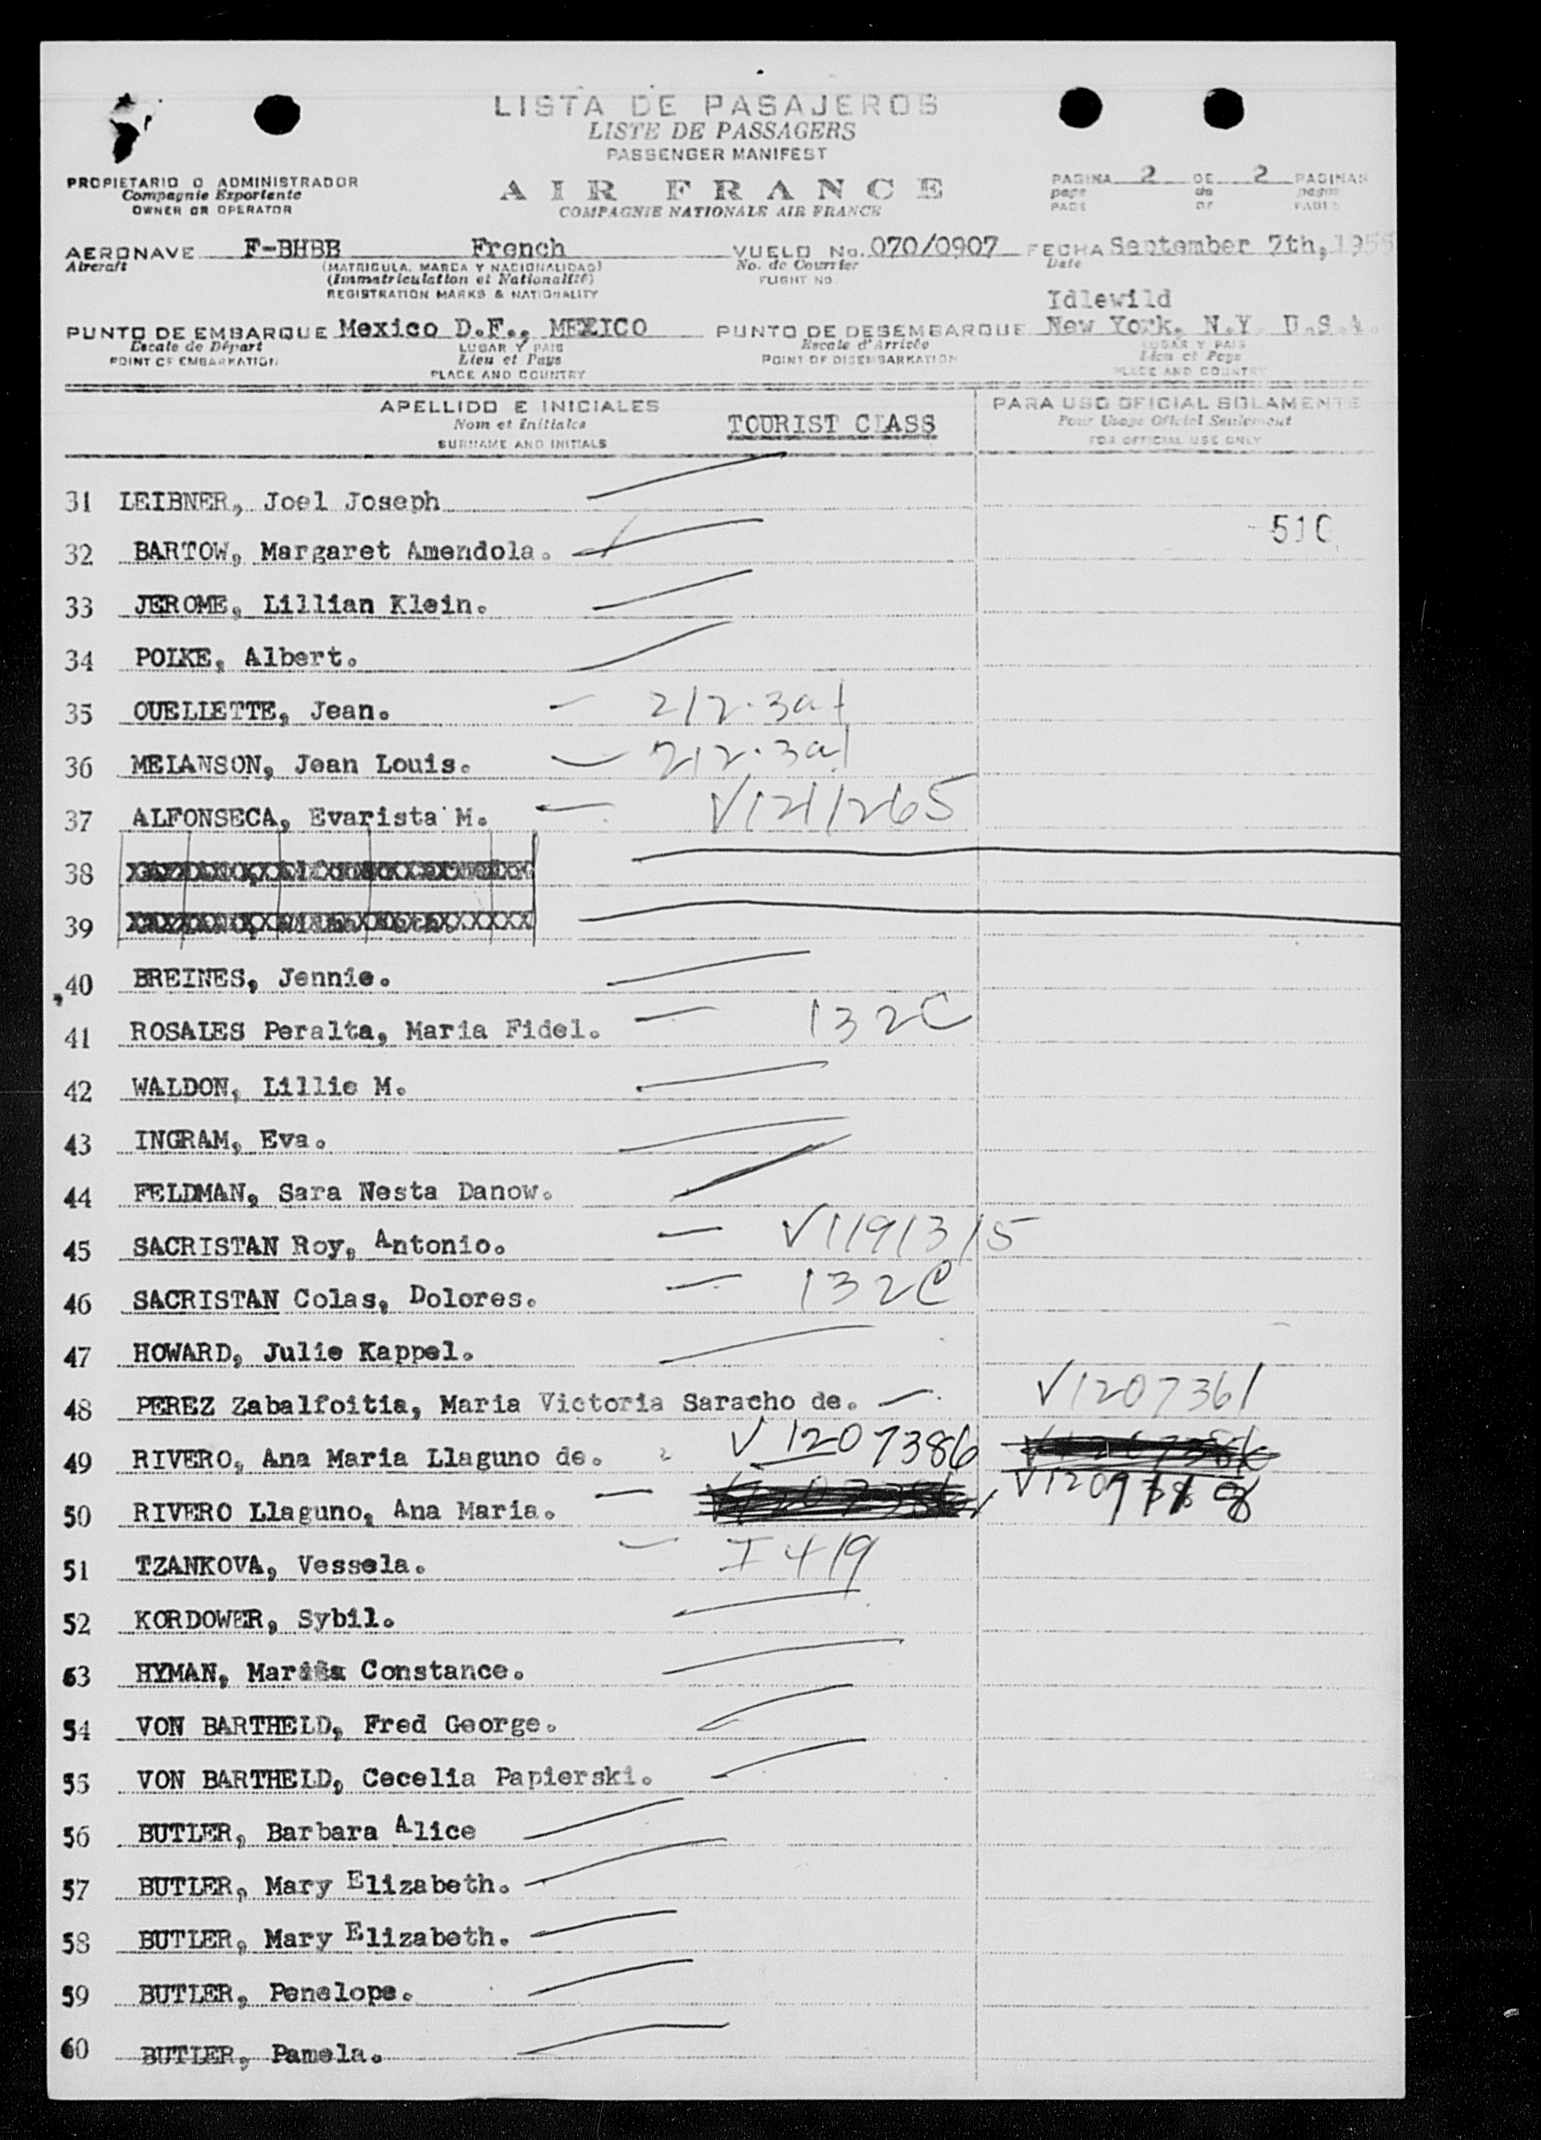 LISTA DE PASAJEROS
LISTE DE PASSAGERS
PASSENGER MANIFEST
PROPIETARIO O ADMINISTRADOR
Compagnie Exportente
OWNER OR OPERATOR
AIR FRANCE
COMPAGNIE NATIONALE AIR FRANCE
PAGINA 2 DE 2 PAGINAS
page de pages
PAGE OF PAGES
AERONAVE F-BHBB French VUELO No. 070/0907 FECHA September 7th, 195
Aircraft (MATRICULA, MARCA Y NACIONALIDAD) No. de Courrier Date
(Immatriculation et Nationalité) FLIGHT NO.
REGISTRATION MARKS & NATIONALITY
Idlewild
PUNTO DE EMBARQUE Mexico D.F., MEXICO PUNTO DE DESEMBARQUE New York. N.Y. U.S.A.
Escale de Départ LUGAR Y PAIS Escale d'Arrivée LUGAR Y PAIS
POINT OF EMBARKATION Lieu et Pays POINT OF DISEMBARKATION Lieu et Pays
PLACE AND COUNTRY PLACE AND COUNTRY
APELLIDO E INICIALES PARA USO OFICIAL SOLAMENTE
Nom et Initiales TOURIST CLASS Pour Usage Officiel Seulement
SURNAME AND INITIALS FOR OFFICIAL USE ONLY
31 LEIBNER, Joel Joseph
32 BARTOW, Margaret Amendola. 510
33 JEROME, Lillian Klein.
34 POLKE, Albert.
35 OUELLETTE, Jean. 212.3a1
36 MELANSON, Jean Louis. 212.3a1
37 ALFONSECA, Evarista M. V1211265
38
39
40 BREINES, Jennie.
41 ROSALES Peralta, Maria Fidel. 132C
42 WALDON, Lillie M.
43 INGRAM, Eva.
44 FELDMAN, Sara Nesta Danow.
45 SACRISTAN Roy, Antonio. V1191315
46 SACRISTAN Colas, Dolores. 132C
47 HOWARD, Julie Kappel.
48 PEREZ Zabalfoitia, Maria Victoria Saracho de. V1207361
49 RIVERO, Ana Maria Llaguno de. V1207386
50 RIVERO Llaguno, Ana Maria.
51 TZANKOVA, Vessela. I 419
52 KORDOWER, Sybil.
53 HYMAN, Constance.
54 VON BARTHELD, Fred George.
55 VON BARTHELD, Cecelia Papierski.
56 BUTLER, Barbara Alice
57 BUTLER, Mary Elizabeth.
58 BUTLER, Mary Elizabeth.
59 BUTLER, Penelope.
60 BUTLER, Pamela.